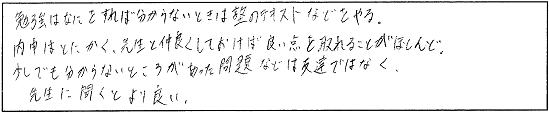 勉強はなにをすれば分からないときは塾のテキストなどをやる。
内申はとにかく、先生と仲良くしておけば良い点を取れることがほとんど。
少しでも分からないところがあった問題などは友達ではなく、
先生に聞くとより良い。